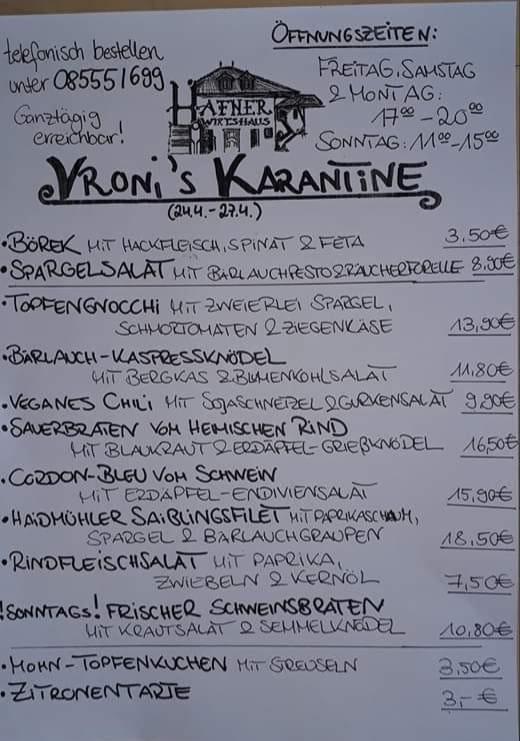 telefonisch bestellen
unter 085551699
Ganztägig
erreichbar!
ÖFFNUNGSZEITEN:
FREITAG, SAMSTAG
& MONTAG:
17⁰⁰ - 20⁰⁰
SONNTAG: 11⁰⁰ - 15⁰⁰
HAFNER
WIRTSHAUS
VRONI'S KARANTINE
(24.4. - 27.4.)
• BÖREK MIT HACKFLEISCH, SPINAT & FETA 3,50€
• SPARGELSALAT MIT BÄRLAUCHPESTO & RÄUCHERFORELLE 8,90€
• TOPFENGNOCCHI MIT ZWEIERLEI SPARGEL,
SCHMORTOMATEN & ZIEGENKÄSE 13,90€
• BÄRLAUCH-KASPRESSKNÖDEL
MIT BERGKAS & BLUMENKOHLSALAT 11,80€
• VEGANES CHILI MIT SOJASCHNETZEL & GURKENSALAT 9,90€
• SAUERBRATEN VOM HEIMISCHEN RIND
MIT BLAUKRAUT & ERDÄPFEL-GRIEßKNÖDEL 16,50€
• CORDON-BLEU VOM SCHWEIN
MIT ERDÄPFEL-ENDIVIENSALAT 15,90€
• HAIDMÜHLER SAIBLINGSFILET MIT PAPRIKASCHAUM,
SPARGEL & BÄRLAUCHGRAUPEN 18,50€
• RINDFLEISCHSALAT MIT PAPRIKA,
ZWIEBELN & KERNÖL 7,50€
!SONNTAGS! FRISCHER SCHWEINSBRATEN
MIT KRAUTSALAT & SEMMELKNÖDEL 10,80€
• MOHN-TOPFENKUCHEN MIT STREUSELN 3,50€
• ZITRONENTARTE 3,- €